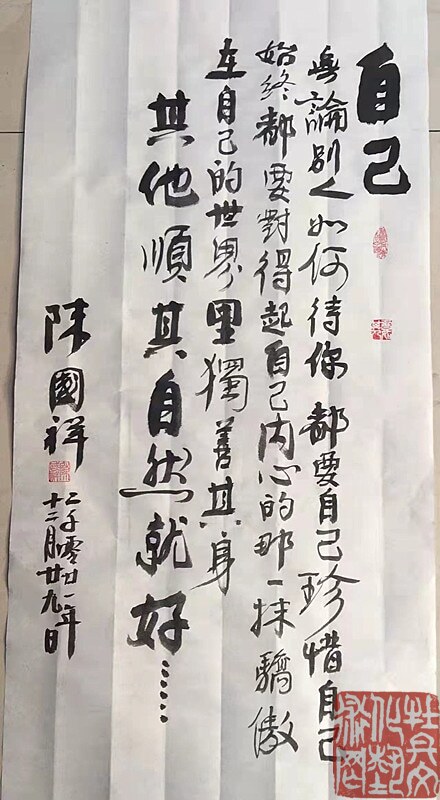 自己
無論別人如何待你都要自己珍惜自己
始终都要對得起自己内心的那一抹驕傲
在自己的世界里獨善其身
其他順其自然就好……
陳國祥
二千零廿一年
十二月廿九日